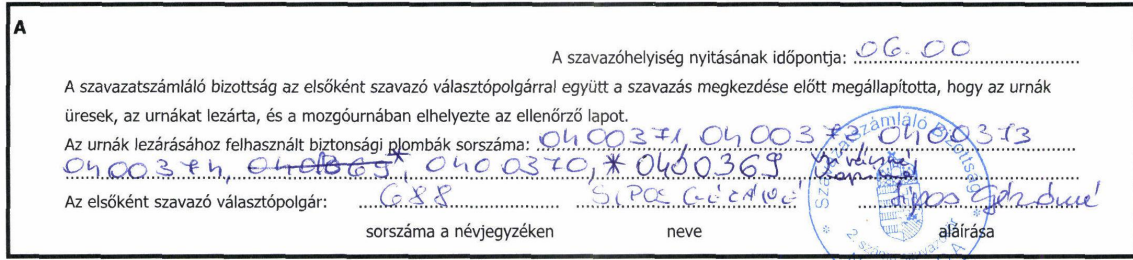 A
A szavazóhelyiség nyitásának időpontja: 06.00
A szavazatszámláló bizottság az elsőként szavazó választópolgárral együtt a szavazás megkezdése előtt megállapította, hogy az urnák
üresek, az urnákat lezárta, és a mozgóurnában elhelyezte az ellenőrző lapot.
Az urnák lezárásához felhasznált biztonsági plombák sorszáma: 0400371, 0400372, 0400373
0400374, * , 0400370, * 0400369
Az elsőként szavazó választópolgár: 688 SIPOS GÉZÁNÉ Sipos Gézáné
sorszáma a névjegyzéken neve aláírása
Szavazatszámláló Bizottság